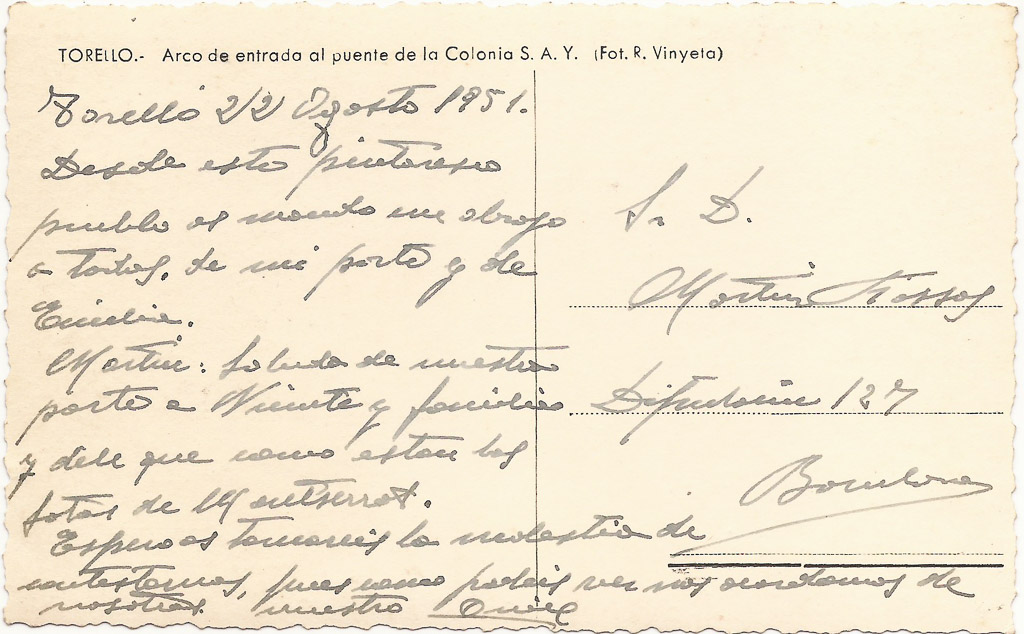 TORELLO.- Arco de entrada al puente de la Colonia S. A. Y. (Fot. R. Vinyeta)
Torelló 22 Agosto 1951.
Desde este pintoresco
pueblo os mando un abrazo
a todos, de mi parte y de
Emilia.
Martin: Saluda de nuestra
parte a Vicente y familia
y dele que como estan las
fotos de Montserrat.
Espero os tomareis la molestia de
contestarnos, pues como podeis ver nos acordamos de
vosotros. vuestro
Sr. D.
Martin
Diputación 127
Barcelona